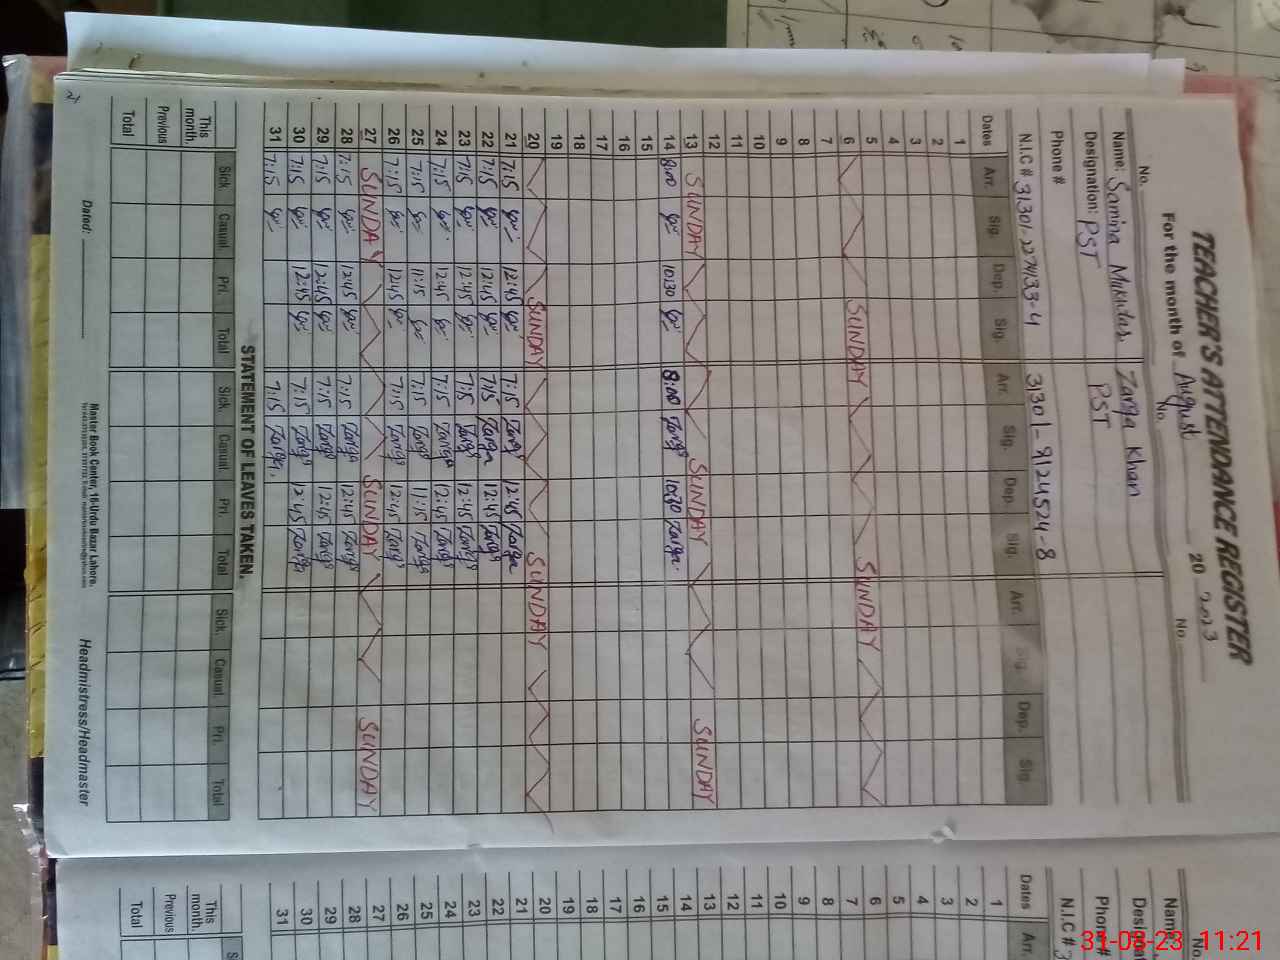 TEACHER'S ATTENDANCE REGISTER
For the month of August 20 2023
No. No. No.
Name: Samina Mukhtar Zarqa Khan
Designation: PST PST
Phone #
N.I.C # 31301-2274133-4 31301-9124524-8
Dates Arr. Sig. Dep. Sig. Arr. Sig. Dep. Sig. Arr. Sig. Dep. Sig.
1
2
3
4
5
6 SUNDAY SUNDAY
7
8
9
10
11
12
13 SUNDAY SUNDAY SUNDAY
14 8:00 10:30 8:00 Zarqa 10:30 Zarqa
15
16
17
18
19
20 SUNDAY SUNDAY
21 7:15 12:45 7:15 Zarqa 12:45 Zarqa
22 7:15 12:45 7:15 Zarqa 12:45 Zarqa
23 7:15 12:45 7:15 Zarqa 12:45 Zarqa
24 7:15 12:45 7:15 Zarqa 12:45 Zarqa
25 7:15 11:15 7:15 Zarqa 11:15 Zarqa
26 7:15 12:45 7:15 Zarqa 12:45 Zarqa
27 SUNDAY SUNDAY SUNDAY
28 7:15 12:45 7:15 Zarqa 12:45 Zarqa
29 7:15 12:45 7:15 Zarqa 12:45 Zarqa
30 7:15 12:45 7:15 Zarqa 12:45 Zarqa
31 7:15 7:15 Zarqa
STATEMENT OF LEAVES TAKEN.
Sick. Casual. Pri. Total Sick. Casual. Pri. Total Sick. Casual. Pri. Total
This month.
Previous
Total
Dated: Master Book Center, 16-Urdu Bazar Lahore. Headmistress/Headmaster
No.
Name
Designat
Phone #
N.I.C # 3
Dates Arr.
1
2
3
4
5
6
7
8
9
10
11
12
13
14
15
16
17
18
19
20
21
22
23
24
25
26
27
28
29
30
31
This month.
Previous
Total
31-08-23 11:21